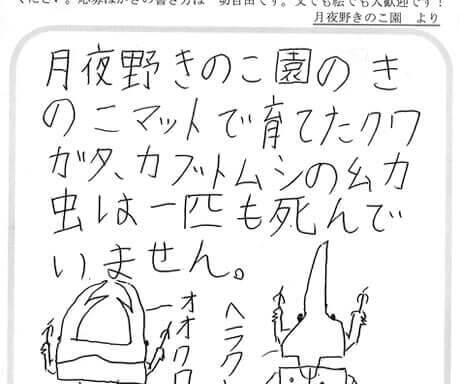 ください。応募はがきの書き方は一切自由です。文でも絵でも大歓迎です！
月夜野きのこ園　より
月夜野きのこ園のき
のこマットで育てたクワ
ガタ、カブトムシの幼
虫は一匹も死んで
いません。
オオクワ
ヘラクレ